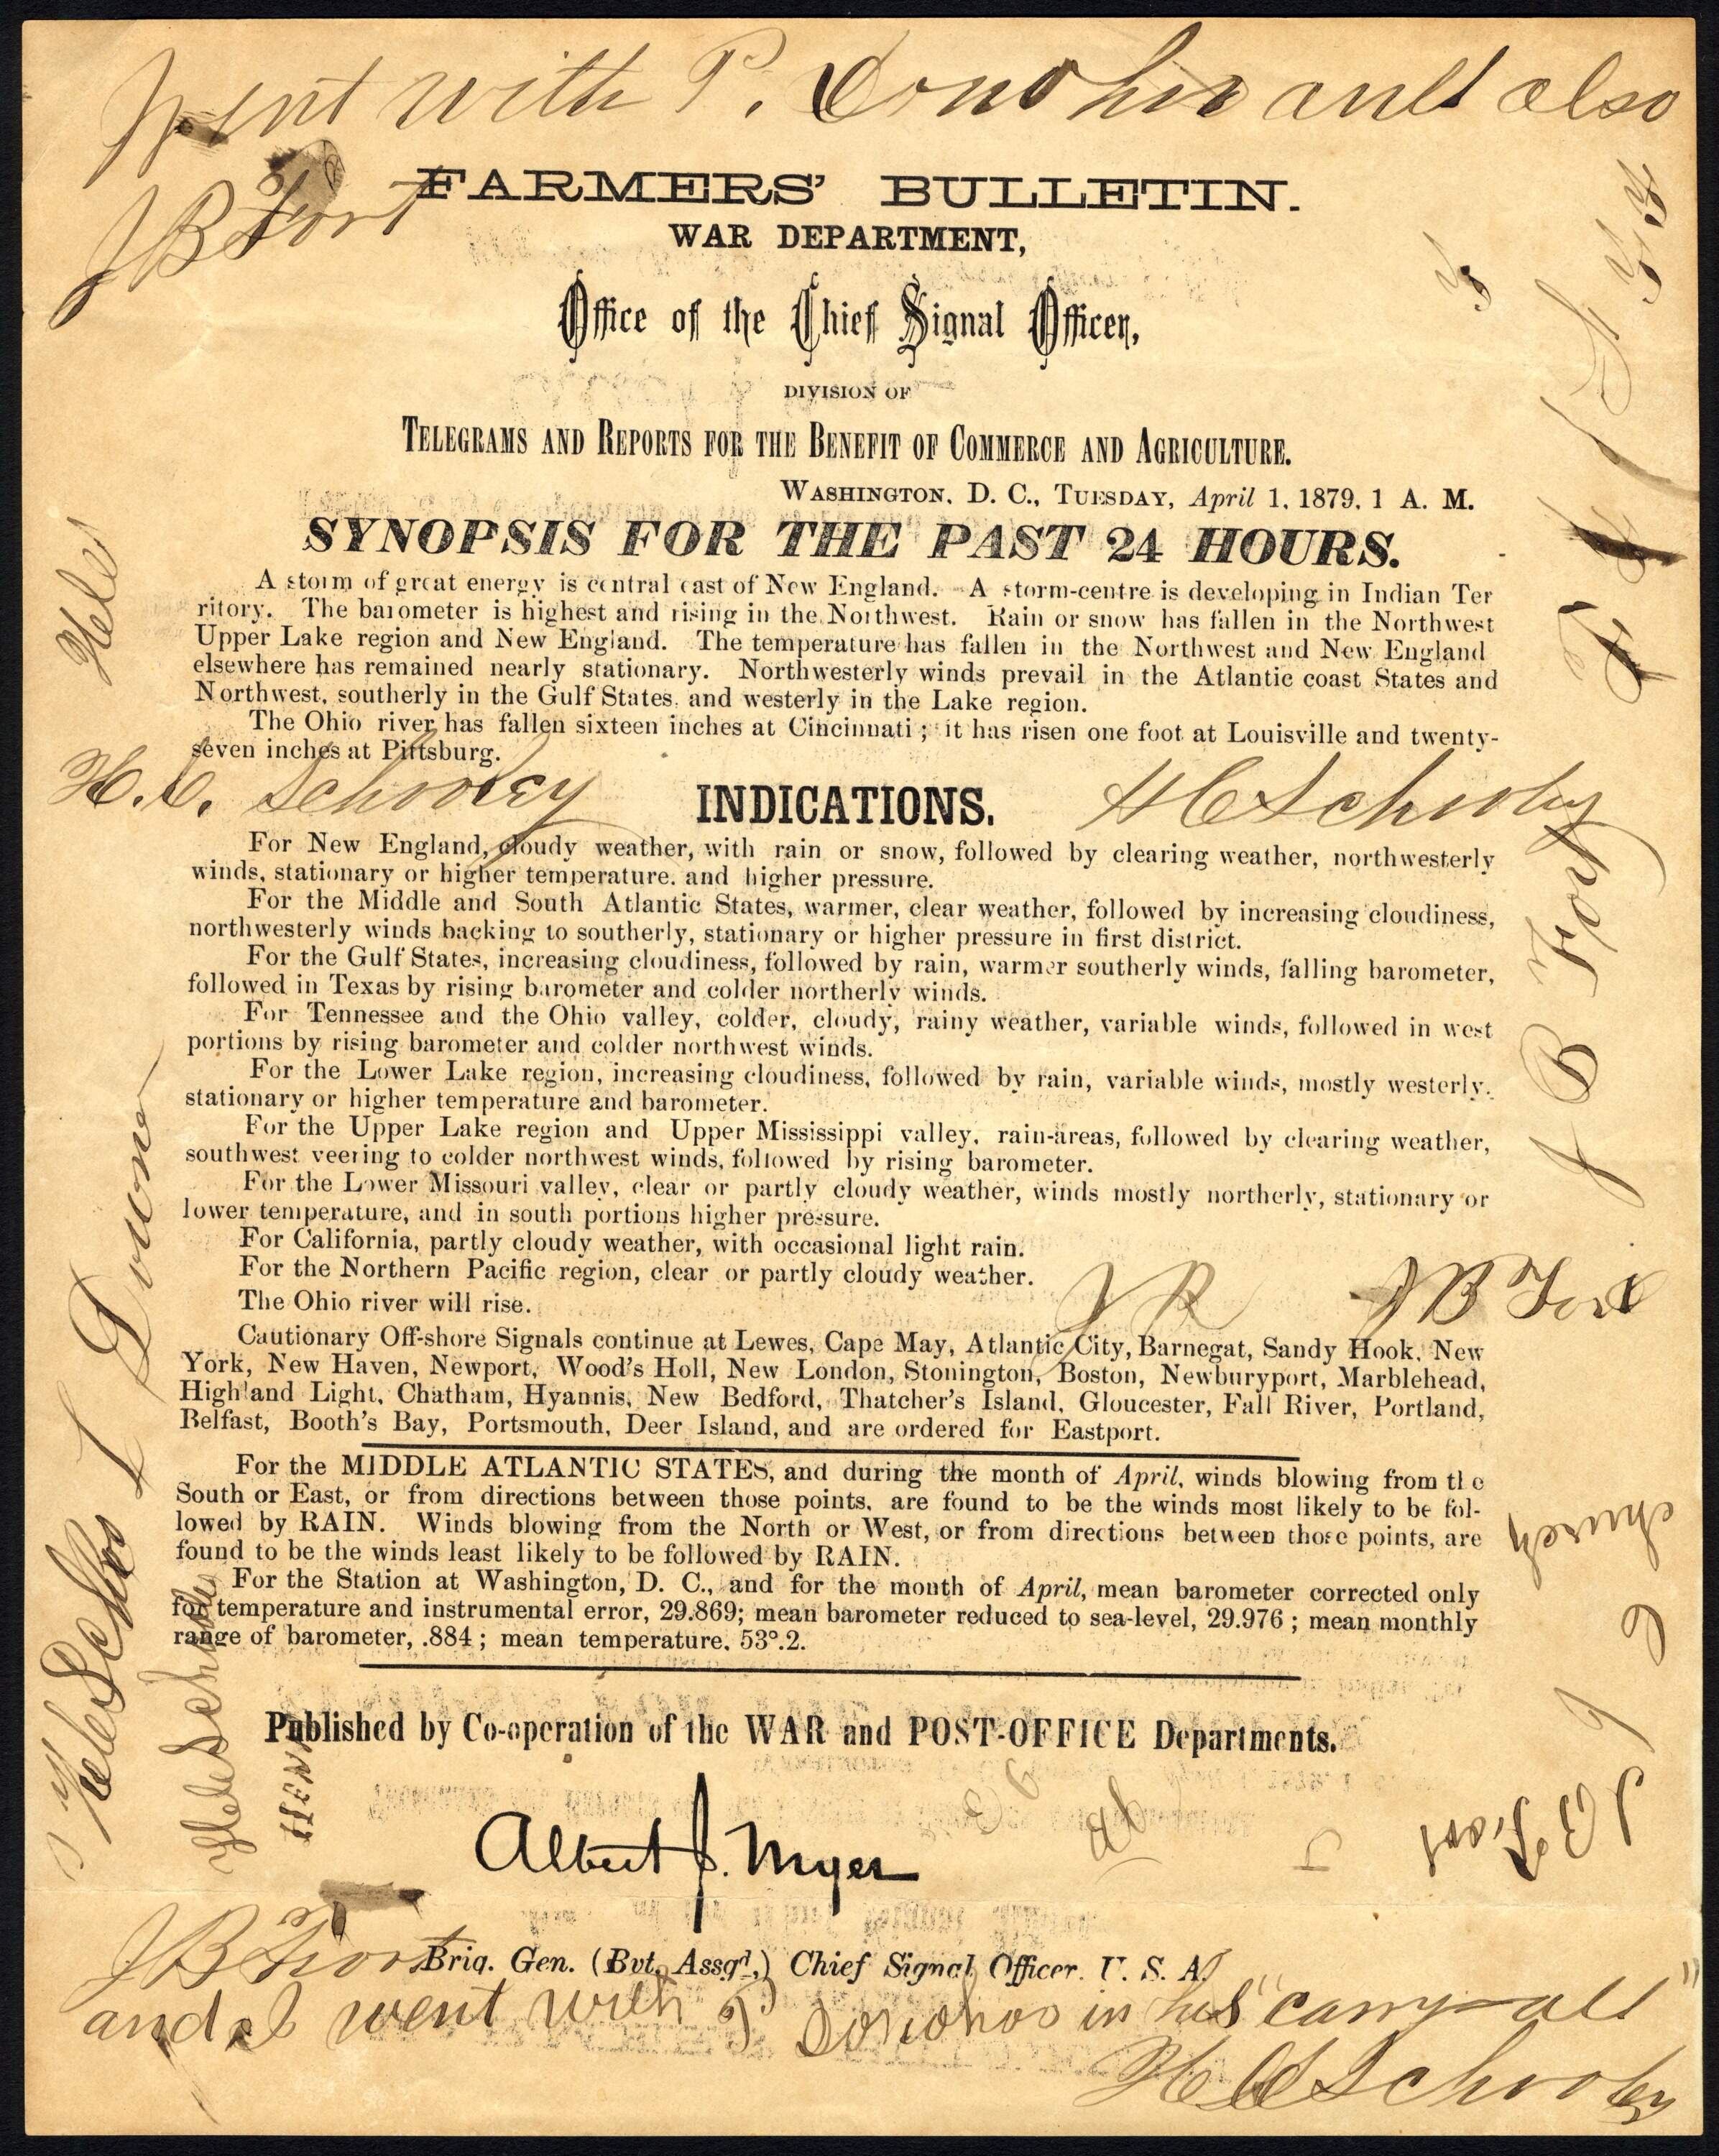 went with P. Donoho and also
J B Fort
FARMERS' BULLETIN.
WAR DEPARTMENT,
Office of the Chief Signal Officer,
DIVISION OF
TELEGRAMS AND REPORTS FOR THE BENEFIT OF COMMERCE AND AGRICULTURE.
WASHINGTON, D. C., TUESDAY, April 1, 1879, 1 A. M.
SYNOPSIS FOR THE PAST 24 HOURS.
A storm of great energy is central east of New England. A storm-centre is developing in Indian Ter
ritory. The barometer is highest and rising in the Northwest. Rain or snow has fallen in the Northwest
Upper Lake region and New England. The temperature has fallen in the Northwest and New England
elsewhere has remained nearly stationary. Northwesterly winds prevail in the Atlantic coast States and
Northwest, southerly in the Gulf States, and westerly in the Lake region.
The Ohio river has fallen sixteen inches at Cincinnati; it has risen one foot at Louisville and twenty-
seven inches at Pittsburg.
H. C. Schooley
INDICATIONS.
H C Schooley
For New England, cloudy weather, with rain or snow, followed by clearing weather, northwesterly
winds, stationary or higher temperature, and higher pressure.
For the Middle and South Atlantic States, warmer, clear weather, followed by increasing cloudiness,
northwesterly winds backing to southerly, stationary or higher pressure in first district.
For the Gulf States, increasing cloudiness, followed by rain, warmer southerly winds, falling barometer,
followed in Texas by rising barometer and colder northerly winds.
For Tennessee and the Ohio valley, colder, cloudy, rainy weather, variable winds, followed in west
portions by rising barometer and colder northwest winds.
For the Lower Lake region, increasing cloudiness, followed by rain, variable winds, mostly westerly,
stationary or higher temperature and barometer.
For the Upper Lake region and Upper Mississippi valley, rain-areas, followed by clearing weather,
southwest veering to colder northwest winds, followed by rising barometer.
For the Lower Missouri valley, clear or partly cloudy weather, winds mostly northerly, stationary or
lower temperature, and in south portions higher pressure.
For California, partly cloudy weather, with occasional light rain.
For the Northern Pacific region, clear or partly cloudy weather.
The Ohio river will rise.
J B Fort
J B Fort
Cautionary Off-shore Signals continue at Lewes, Cape May, Atlantic City, Barnegat, Sandy Hook, New
York, New Haven, Newport, Wood's Holl, New London, Stonington, Boston, Newburyport, Marblehead,
Highland Light, Chatham, Hyannis, New Bedford, Thatcher's Island, Gloucester, Fall River, Portland,
Belfast, Booth's Bay, Portsmouth, Deer Island, and are ordered for Eastport.
For the MIDDLE ATLANTIC STATES, and during the month of April, winds blowing from the
South or East, or from directions between those points, are found to be the winds most likely to be fol-
lowed by RAIN. Winds blowing from the North or West, or from directions between those points, are
found to be the winds least likely to be followed by RAIN.
For the Station at Washington, D. C., and for the month of April, mean barometer corrected only
for temperature and instrumental error, 29.869; mean barometer reduced to sea-level, 29.976; mean monthly
range of barometer, .884; mean temperature, 53°.2.
church
Published by Co-operation of the WAR and POST-OFFICE Departments.
J B Fort
Albert J. Myer
J B Fort
Brig. Gen. (Bvt. Assg'd,) Chief Signal Officer, U. S. A.
and I went with P Donohos in his "carry-all"
H C Schooley